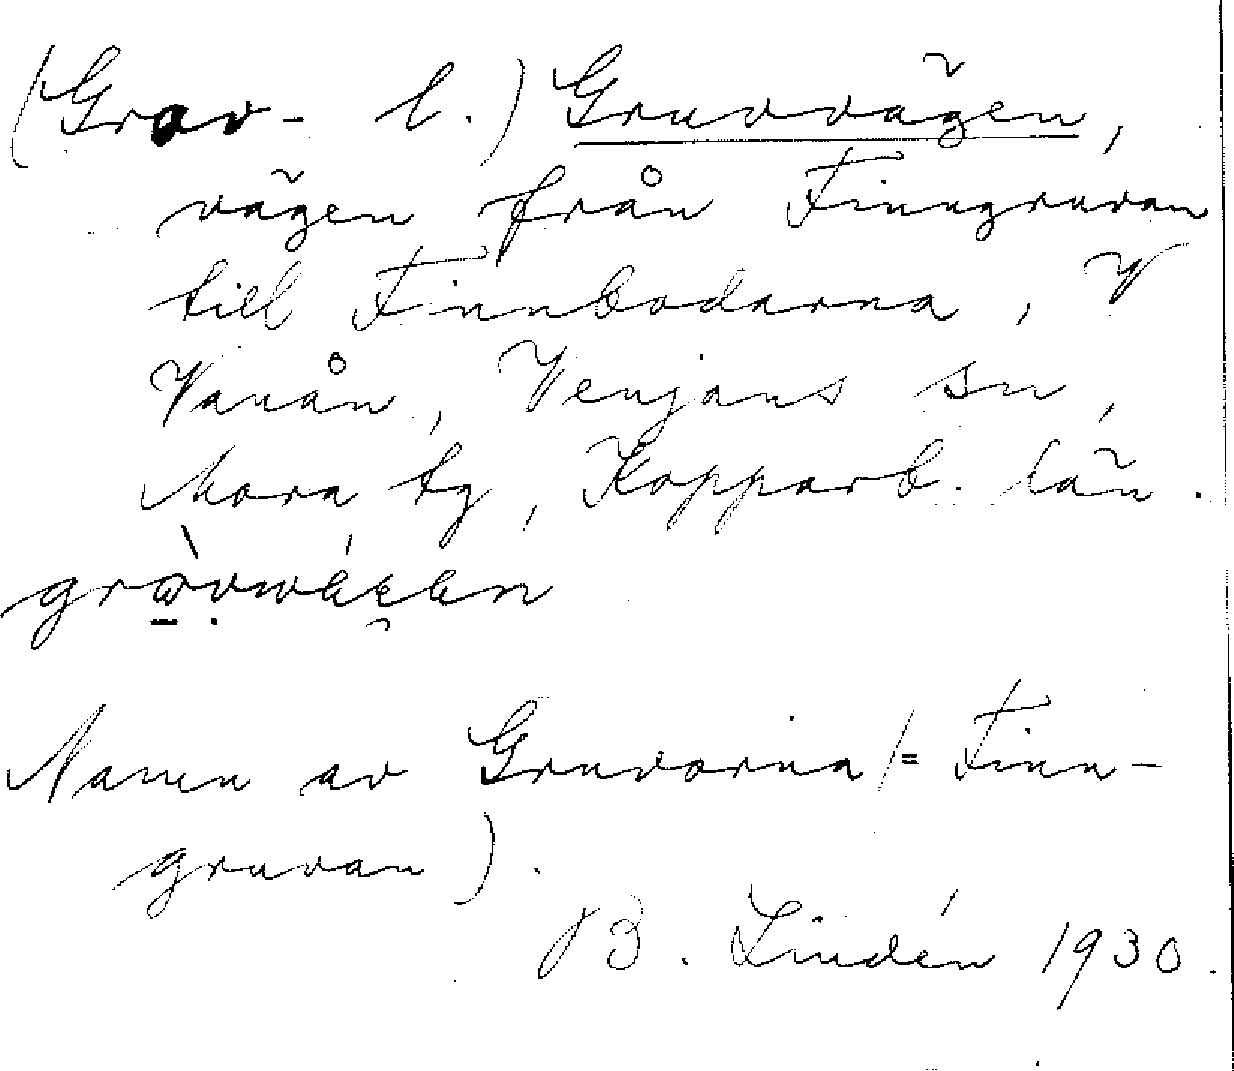 (Grav- l.) Gruvvägen,
vägen från Finngruvan
till Finnbodarna, V
Vanån, Venjans sn,
Mora tg, Kopparb. län.
Namn av Gruvorna (= Finn-
gruvan).
B. Lindén 1930.